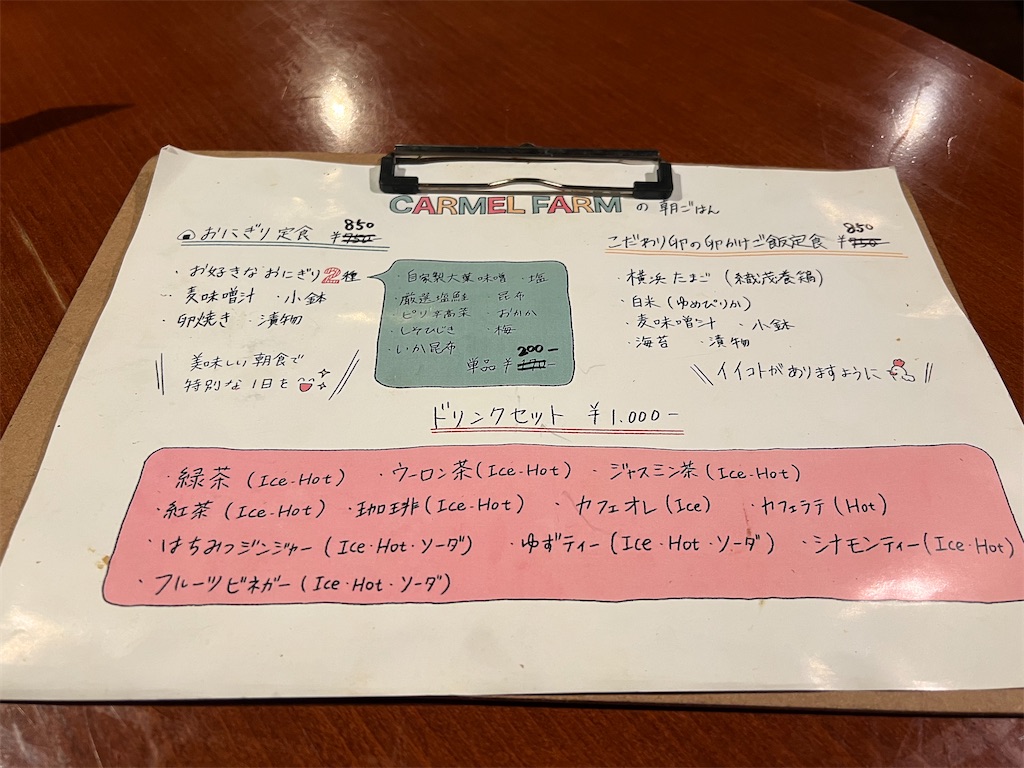 CARMEL FARM の 朝ごはん
おにぎり定食 ¥750- 850
・お好きなおにぎり2種
・麦味噌汁 ・小鉢
・卵焼き ・漬物
美味しい朝食で
特別な1日を
・自家製大葉味噌 ・塩
・厳選塩鮭 ・昆布
・ピリ辛高菜 ・おかか
・しそひじき ・梅
・いか昆布
単品 ¥ 200-
こだわり卵の卵かけご飯定食 ¥750- 850
・横浜たまご (織茂養鶏)
・白米 (ゆめぴりか)
・麦味噌汁 ・小鉢
・海苔 ・漬物
イイコトがありますように
ドリンクセット ¥1.000-
・緑茶 (Ice・Hot) ・ウーロン茶 (Ice・Hot) ・ジャスミン茶 (Ice・Hot)
・紅茶 (Ice・Hot) ・珈琲 (Ice・Hot) ・カフェオレ (Ice) ・カフェラテ (Hot)
・はちみつジンジャー (Ice・Hot・ソーダ) ・ゆずティー (Ice・Hot・ソーダ) ・シナモンティー (Ice・Hot)
・フルーツビネガー (Ice・Hot・ソーダ)